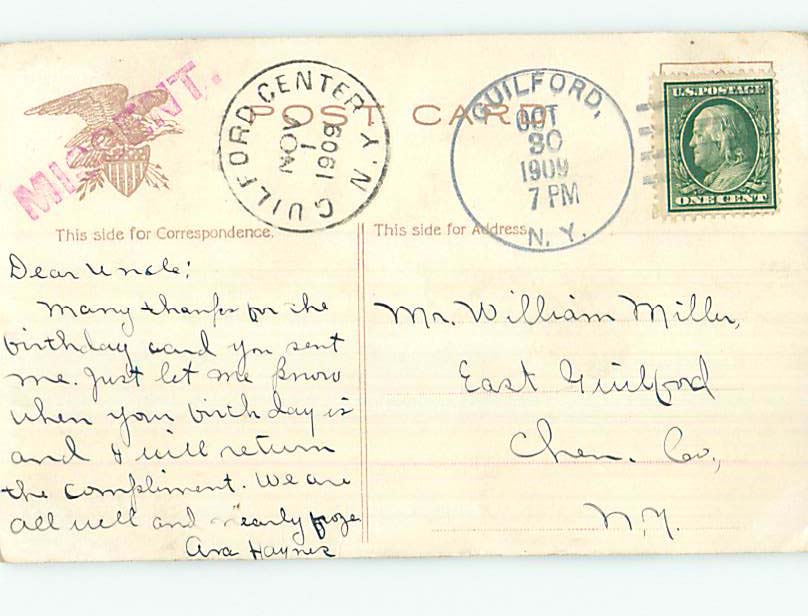 MISSENT.
POST CARD
GUILFORD CENTER N.Y.
NOV
1
1909
GUILFORD,
OCT
30
1909
7 PM
N. Y.
U.S. POSTAGE
ONE CENT
This side for Correspondence.
Dear Uncle:
Many thanks for the
birthday card you sent
me. Just let me know
when your birthday is
and I will return
the compliment. We are
all well and nearly froze
Ava Haynes
This side for Address
Mr. William Miller,
East Guilford
Chen. Co,
N.Y.